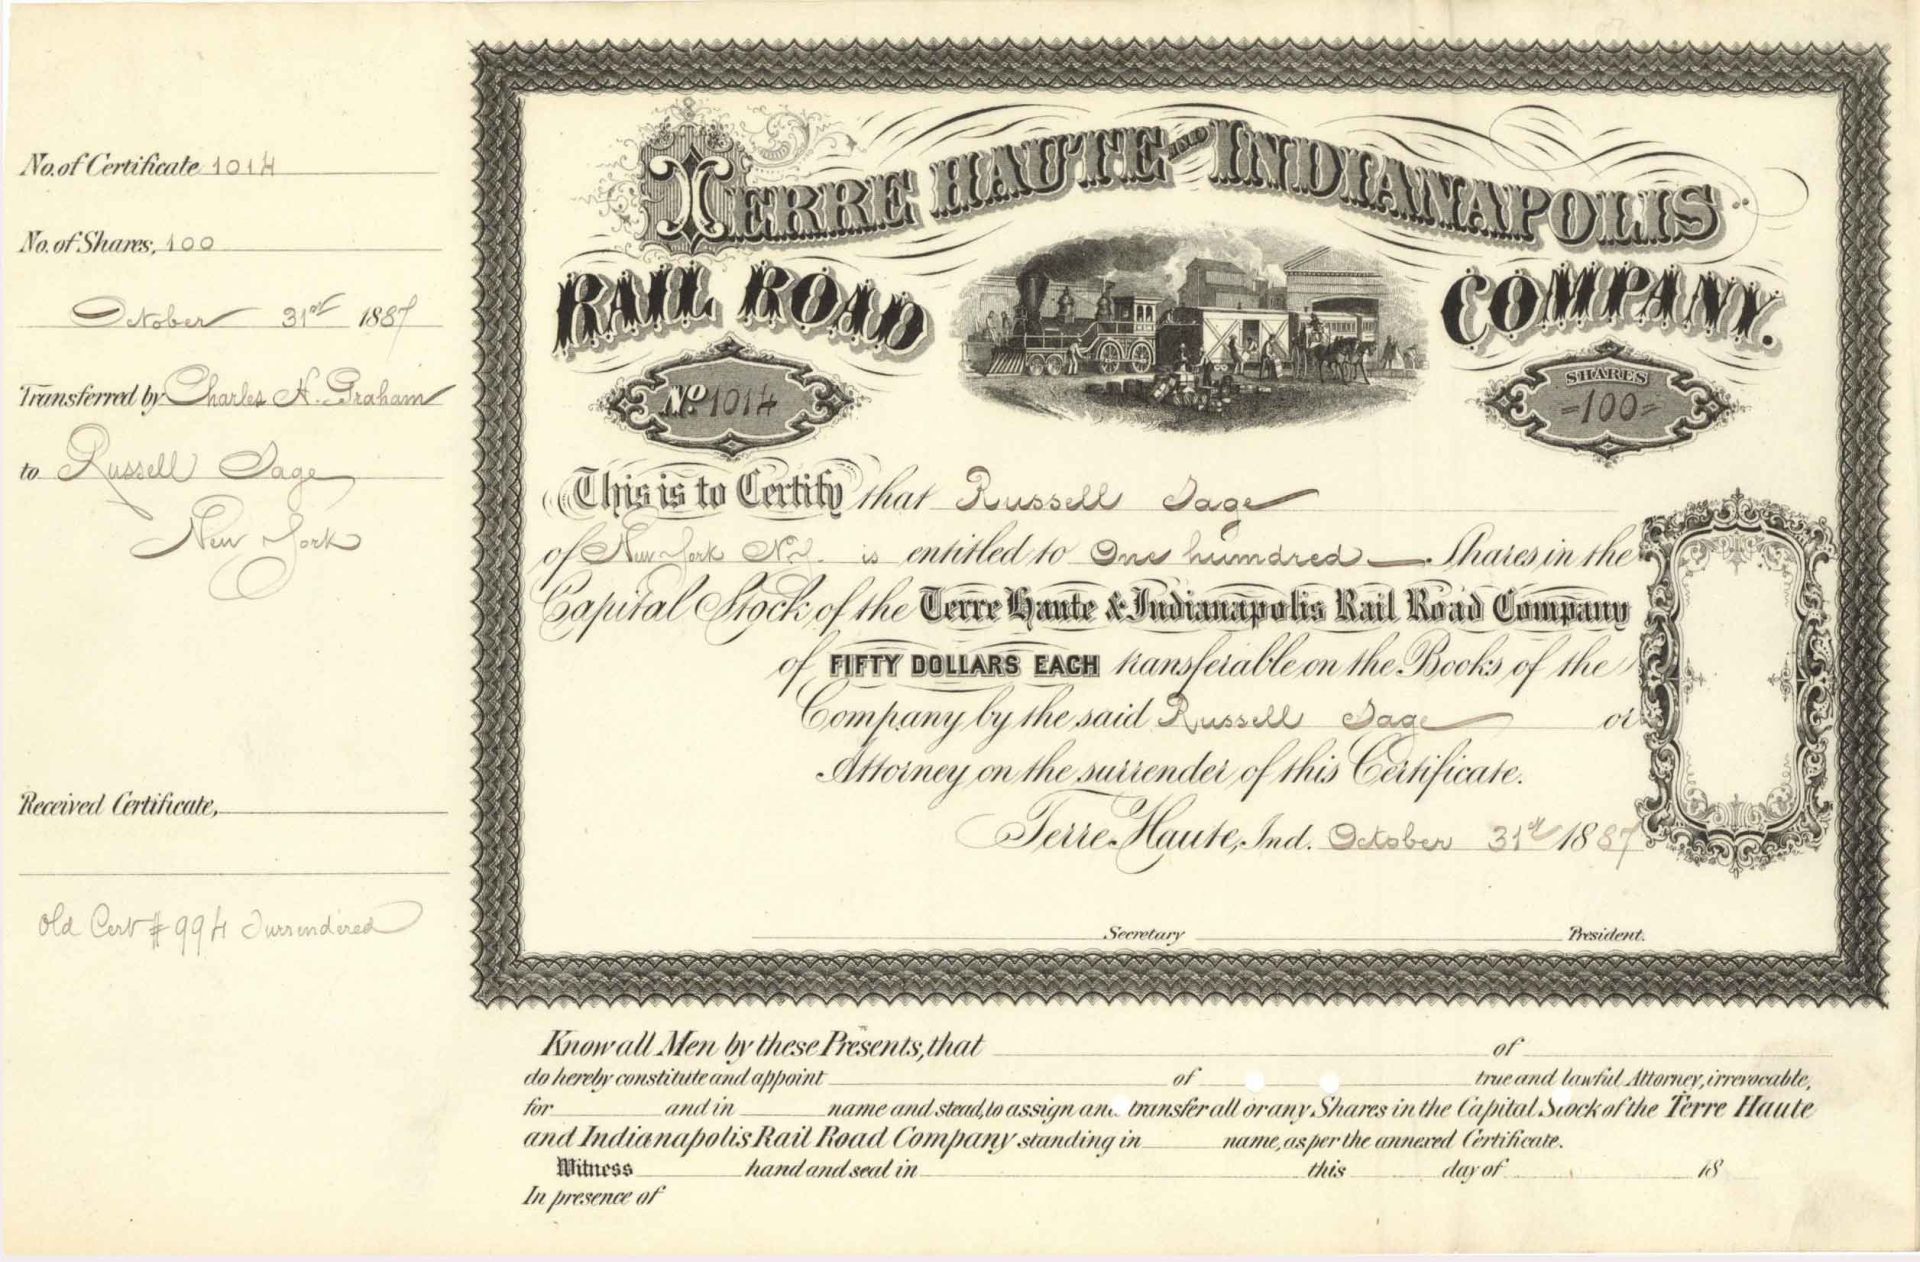 No. of Certificate 1014
No. of Shares, 100
October 31st 1887
Transferred by Charles H. Graham
to Russell Sage
New York
Received Certificate,
Old Cert # 994 Surrendered
TERRE HAUTE AND INDIANAPOLIS
RAIL ROAD COMPANY.
No 1014
SHARES
=100=
This is to Certify that Russell Sage
of New York N.Y. is entitled to One hundred — Shares in the
Capital Stock of the Terre Haute & Indianapolis Rail Road Company
of FIFTY DOLLARS EACH transferable on the Books of the
Company by the said Russell Sage or
Attorney on the surrender of this Certificate.
Terre Haute, Ind. October 31st 1887
Secretary President.
Know all Men by these Presents, that of
do hereby constitute and appoint of true and lawful Attorney, irrevocable,
for and in name and stead, to assign and transfer all or any Shares in the Capital Stock of the Terre Haute
and Indianapolis Rail Road Company standing in name, as per the annexed Certificate.
Witness hand and seal in this day of 18
In presence of